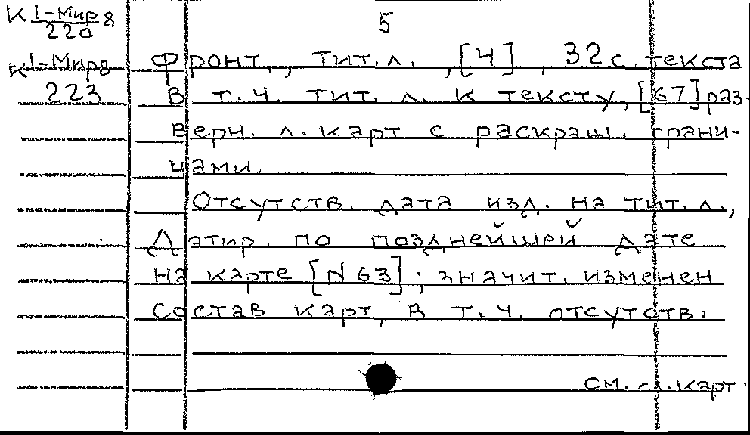 К 1-Мир 8
220
5
К 1-Мир 8
223
Фронт., тит. л., [4], 32 с. текста
в т. ч. тит. л. к тексту, [67] раз-
верн. л. карт с раскраш. грани-
цами.
Отсутств. дата изд. на тит. л.,
Датир. по позднейшей дате
на карте [N 63]; значит. изменен
состав карт, в т. ч. отсутств.
см. сл. карт.